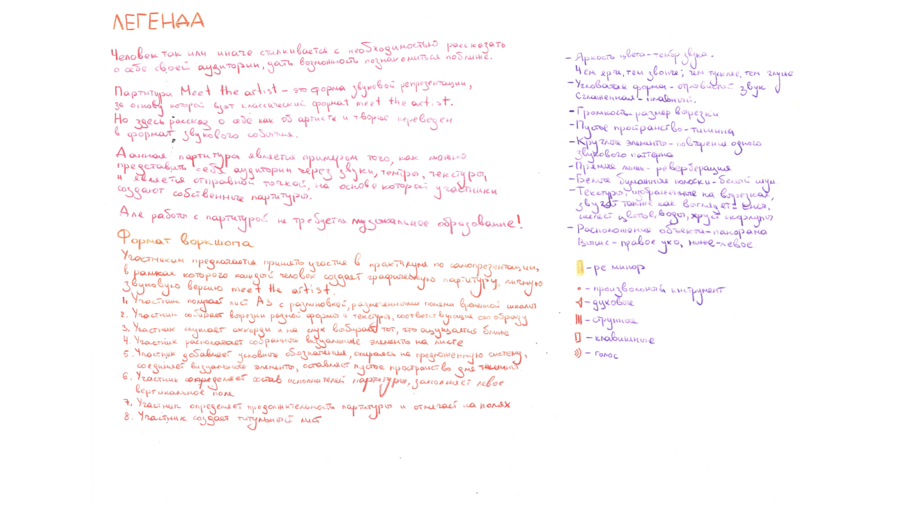 ЛЕГЕНДА
Человек так или иначе сталкивается с необходимостью рассказать
о себе своей аудитории, дать возможность познакомиться поближе.
Партитура Meet the artist – это форма звуковой репрезентации,
за основу которой взят классический формат meet the artist.
Но здесь рассказ о себе как об артисте и творце переведен
в формат звукового события.
Данная партитура является примером того, как можно
представить себя аудитории через звуки, тембры, текстуры,
и является отправной точкой, на основе которой участники
создают собственные партитуры.
Для работы с партитурой не требуется музыкальное образование!
Формат воркшопа
Участникам предлагается принять участие в практикуме по самопрезентации,
в рамках которого каждый человек создает графическую партитуру, личную
звуковую версию meet the artist.
1. Участник получает лист А3 с разлиновкой, размеченными полями временной шкалы
2. Участник собирает вырезки разной формы и текстуры, соответствующие его образу
3. Участник слушает аккорды и на слух выбирает тот, что ощущается ближе
4. Участник располагает собранные визуальные элементы на листе
5. Участник добавляет условные обозначения, опираясь на предложенную систему,
соединяет визуальные элементы, оставляет пустое пространство для тишины
6. Участник определяет состав исполнителей партитуры, заполняет левое
вертикальное поле
7. Участник определяет продолжительность партитуры и отмечает на полях
8. Участник создает титульный лист
– Яркость цвета – тембр звука.
Чем ярче, тем звонче; чем тусклее, тем глуше
– Угловатая форма – отрывистый звук
Сглаженная – плавный.
– Громкость – размер вырезки
– Пустое пространство – тишина
– Круглые элементы – повторения одного
звукового паттерна
– Прямые линии – реверберация
– Белые бумажные полоски – белый шум
– Текстуры, изображенные на вырезках,
звучат также как выглядят –
шелест цветов, воды, хруст скорлупы
– Расположение объекта – панорама
Выше – правое ухо, ниже – левое.
– ре минор
– произвольный инструмент
– духовое
– струнное
– клавишные
– голос